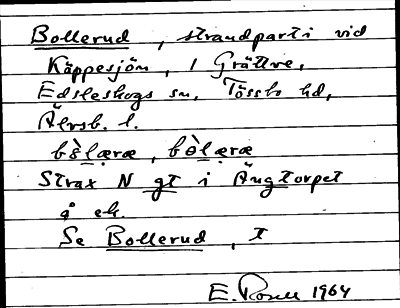 Bollerud, strandparti vid
Käppesjön, i Grättve,
Edsleskogs sn, Tössbo hd,
Älvsb. l.
bòlæræ, bòlæræ
Strax N gt i Ängtorpet
å ek.
Se Bollerud, t
E. Rosell 1964